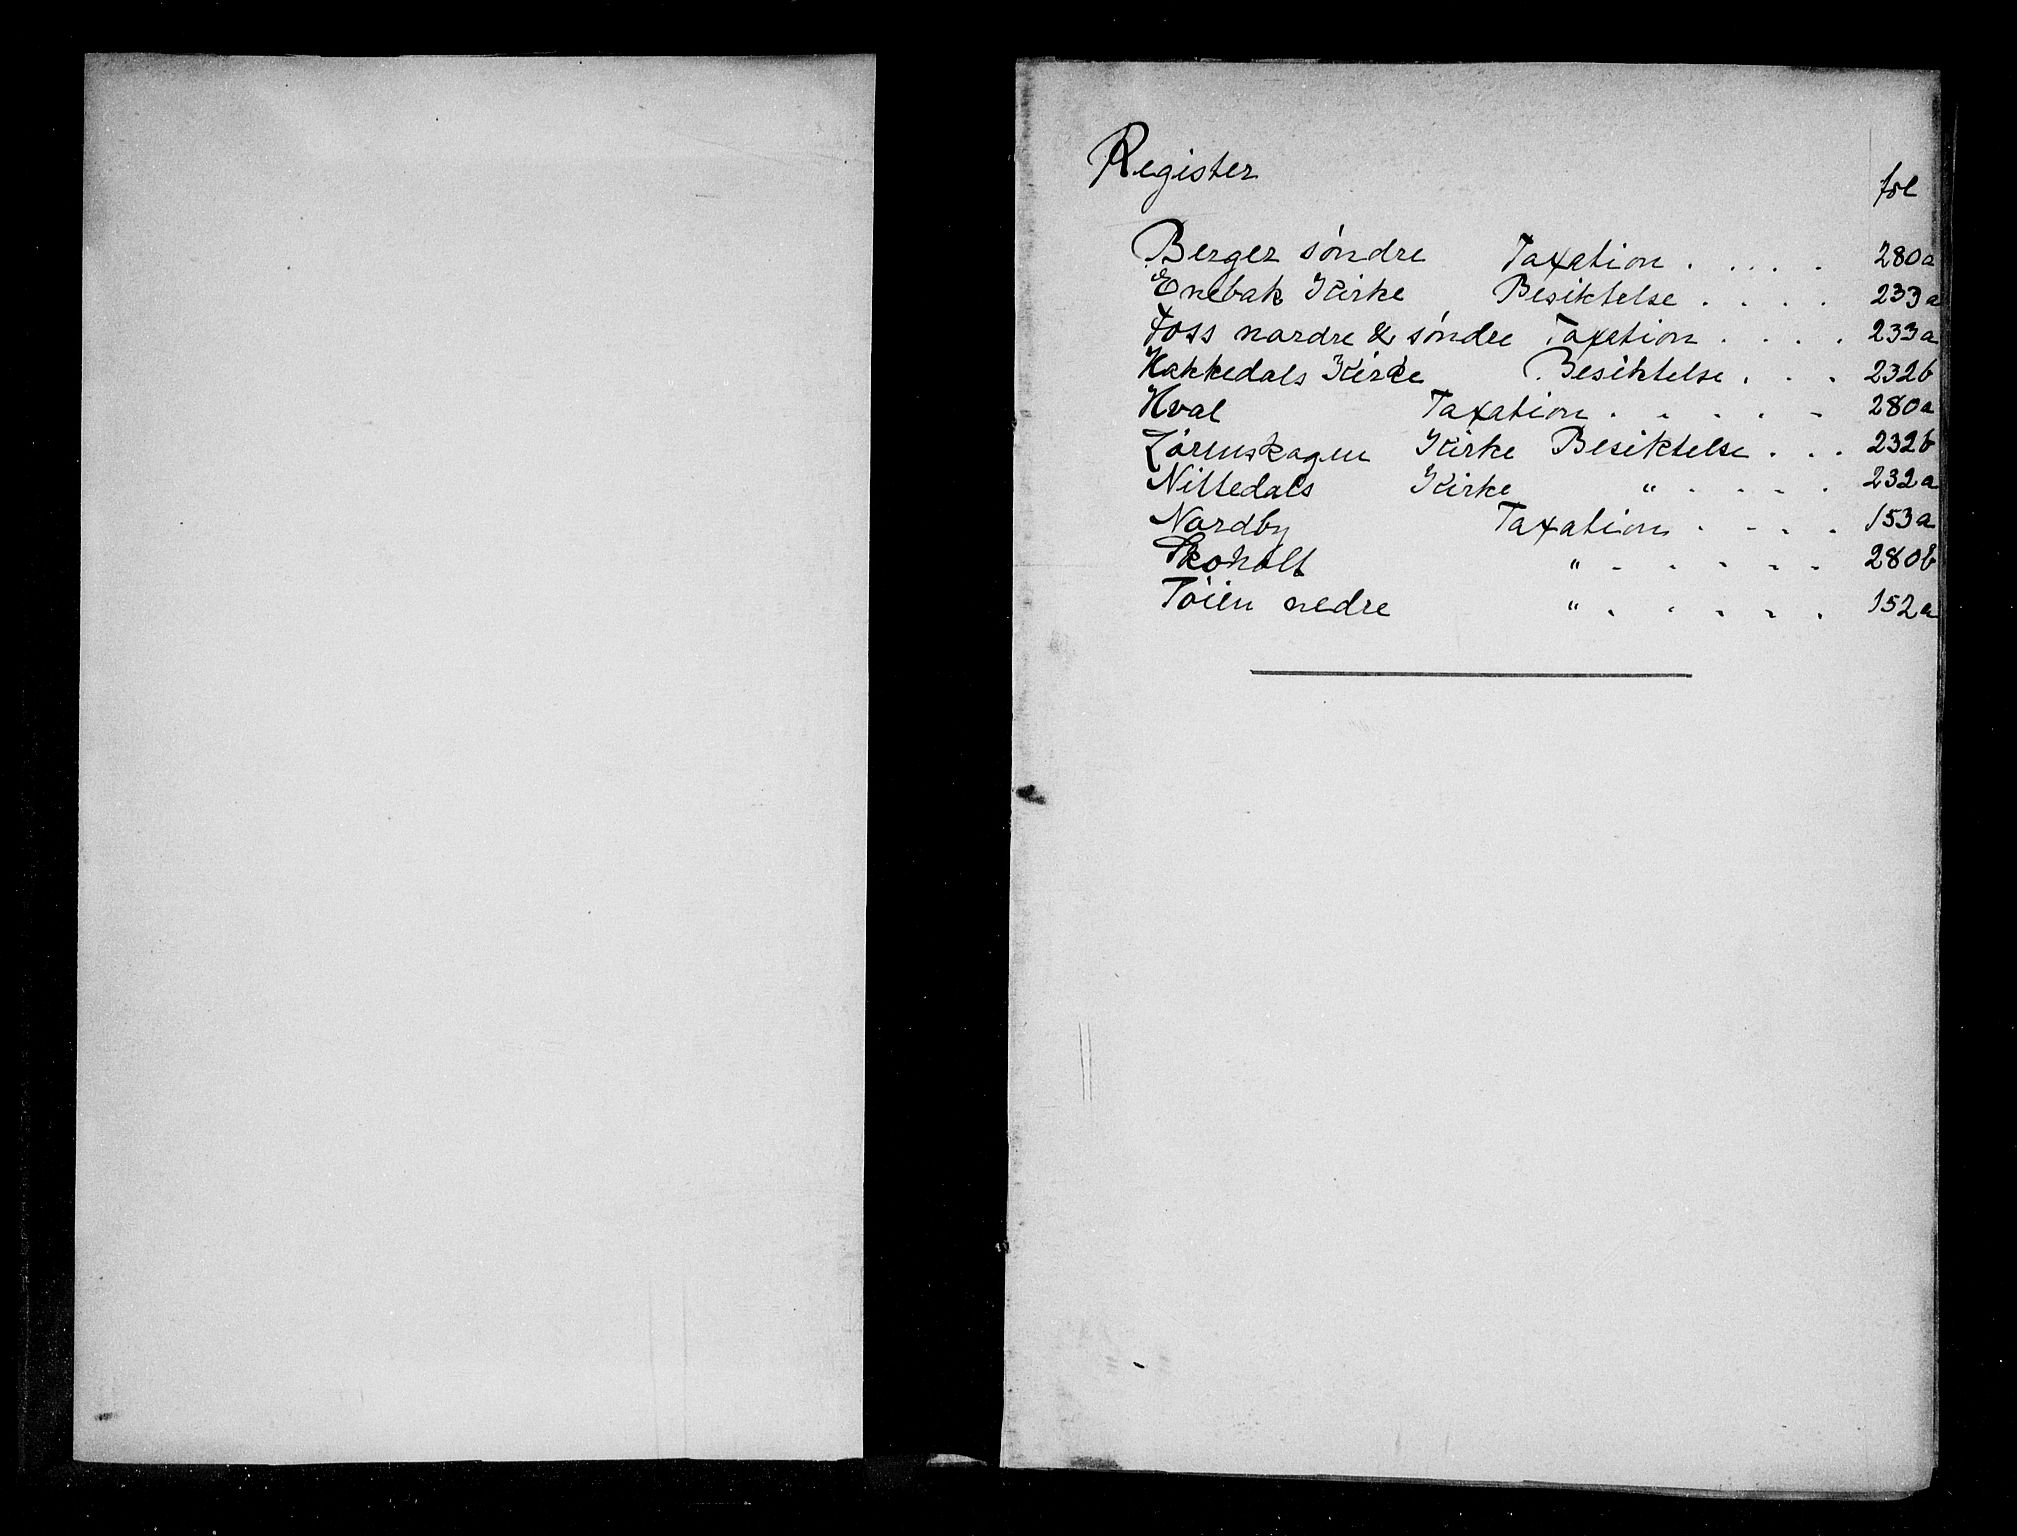 Register
fol
Berger søndre Taxation . . . . . 280a
Enebak Kirke Besiktelse . . . . 233a
Foss nordre & søndre Taxation . . . . 233a
Hakkedals Kirke Besiktelse . . . 232b
Hval Taxation . . . . . 280a
Lørenskogen Kirke Besiktelse . . . 232b
Nittedals Kirke " . . . . 232a
Nordby Taxation . . . . 153a
Skoholt " . . . . . 280b
Tøien nedre " . . . . . 152a